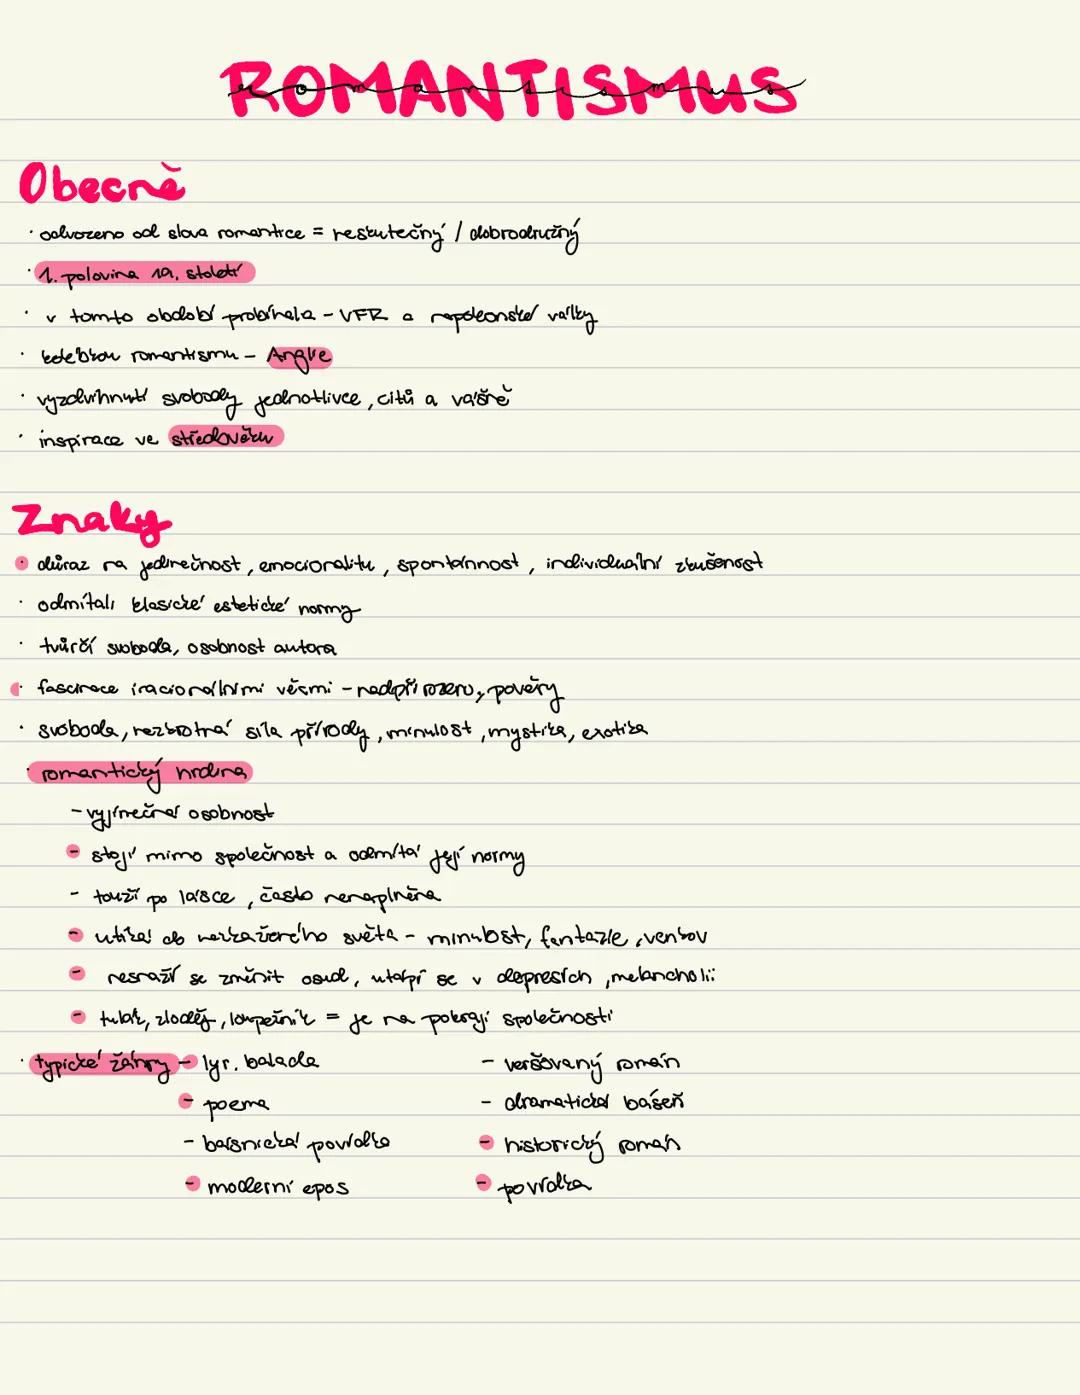 ROMANTISMUS
Obecně
· odvozeno od slova romantice = neskutečný / dobrodružný
· 1. polovina 19. století
· v tomto období probíhala - VFR a napoleonské války
· kolébkou romantismu - Anglie
· vyzdvihnutí svobody jednotlivce, citů a vášně
· inspirace ve středověku
Znaky
· důraz na jedinečnost, emocionalitu, spontánnost, individuální zkušenost
· odmítali klasické estetické normy
· tvůrčí svoboda, osobnost autora
· fascinace iracionálními věcmi - nadpřirozeno, pověry
· svoboda, nezkrotná síla přírody, minulost, mystika, exotika
· romantický hrdina
- vyjímečná osobnost
- stojí mimo společnost a odmítá její normy
- touží po lásce, často nenaplněna
- utíká do nezkaženého světa - minulost, fantazie, venkov
- nesnaží se změnit osud, utápí se v depresích, melancholii
- tulák, zloděj, loupežník = je na pokraji společnosti
· typické žánry - lyr. balada - veršovaný román
- poema - dramatická báseň
- básnická povídka - historický román
- moderní epos - povídka